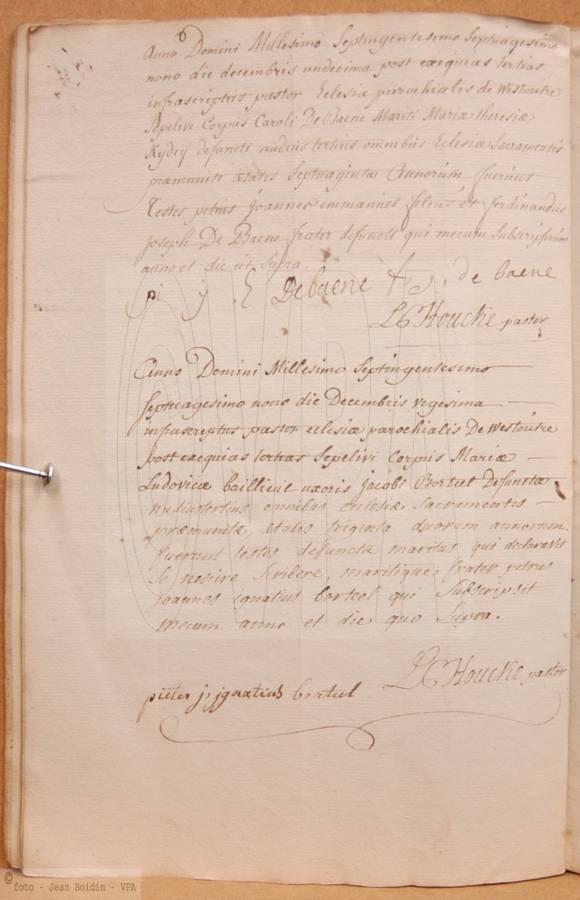 Anno Domini Millesimo Septingentesimo Septuagesimo
nono die decembris undecima post exequias tertias
infrascriptus pastor Eclesiæ parochialis de Westoutre
Sepelivi Corpus Caroli De Baene Mariti Mariæ theresiæ
Rydeij defuncti nudius tertius omnibus Eclesiæ Sacramentis
præmuniti ætatis Septuaginta Annorum fuerunt
Testes petrus Joannes emmanuel filius et ferdinandus
Joseph De Baene frater defuncti qui mecum Subscripserunt
anno et die ut Supra.
pi j E Debaene f j, de baene
L C Houcke pastor
Anno Domini Millesimo Septingentesimo
Septuagesimo nono die Decembris vigesima
infrascriptus pastor eclesiæ parochialis De Westoutre
post exequias tertias Sepelivi Corpus Mariæ
Ludovicæ baillieul uxoris Jacobi Borteel Defunctæ
nudiustertius omnibus eclesiæ Sacramentis
præmunitæ, ætatis triginta duorum annorum.
fuerunt testes defunctæ maritus qui declaravit
se nescire Scribere, maritique, frater petrus
joannes ignatius borteel qui Subscripsit
mecum anno et die quo Supra.
L C Houcke pastor
pieter j: jgnatius borteel
© foto - Jean Boidin - VPA